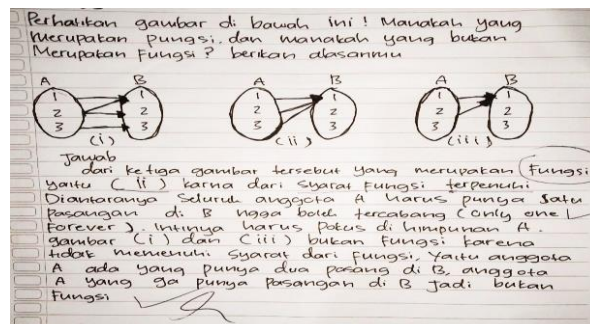 Perhatikan gambar di bawah ini ! Manakah yang
Merupakan Pungsi, dan manakah yang bukan
Merupakan Fungsi ? berikan alasanmu
A B A B A B
1 1 1 1 1 1
2 2 2 2 2 2
3 3 3 3 3 3
(i) (ii) (iii)
Jawab
dari ketiga gambar tersebut yang merupakan Fungsi
yaitu (ii) karna dari syarat Fungsi terpenuhi
Diantaranya seluruh anggota A harus punya satu
pasangan di B ngga boleh tercabang (only one
Forever). Intinya harus potus di himpunan A.
gambar (i) dan (iii) bukan Fungsi karena
tidak memenuhi syarat dari Fungsi, yaitu anggota
A ada yang punya dua pasang di B, anggota
A yang ga punya Pasangan di B Jadi bukan
Fungsi